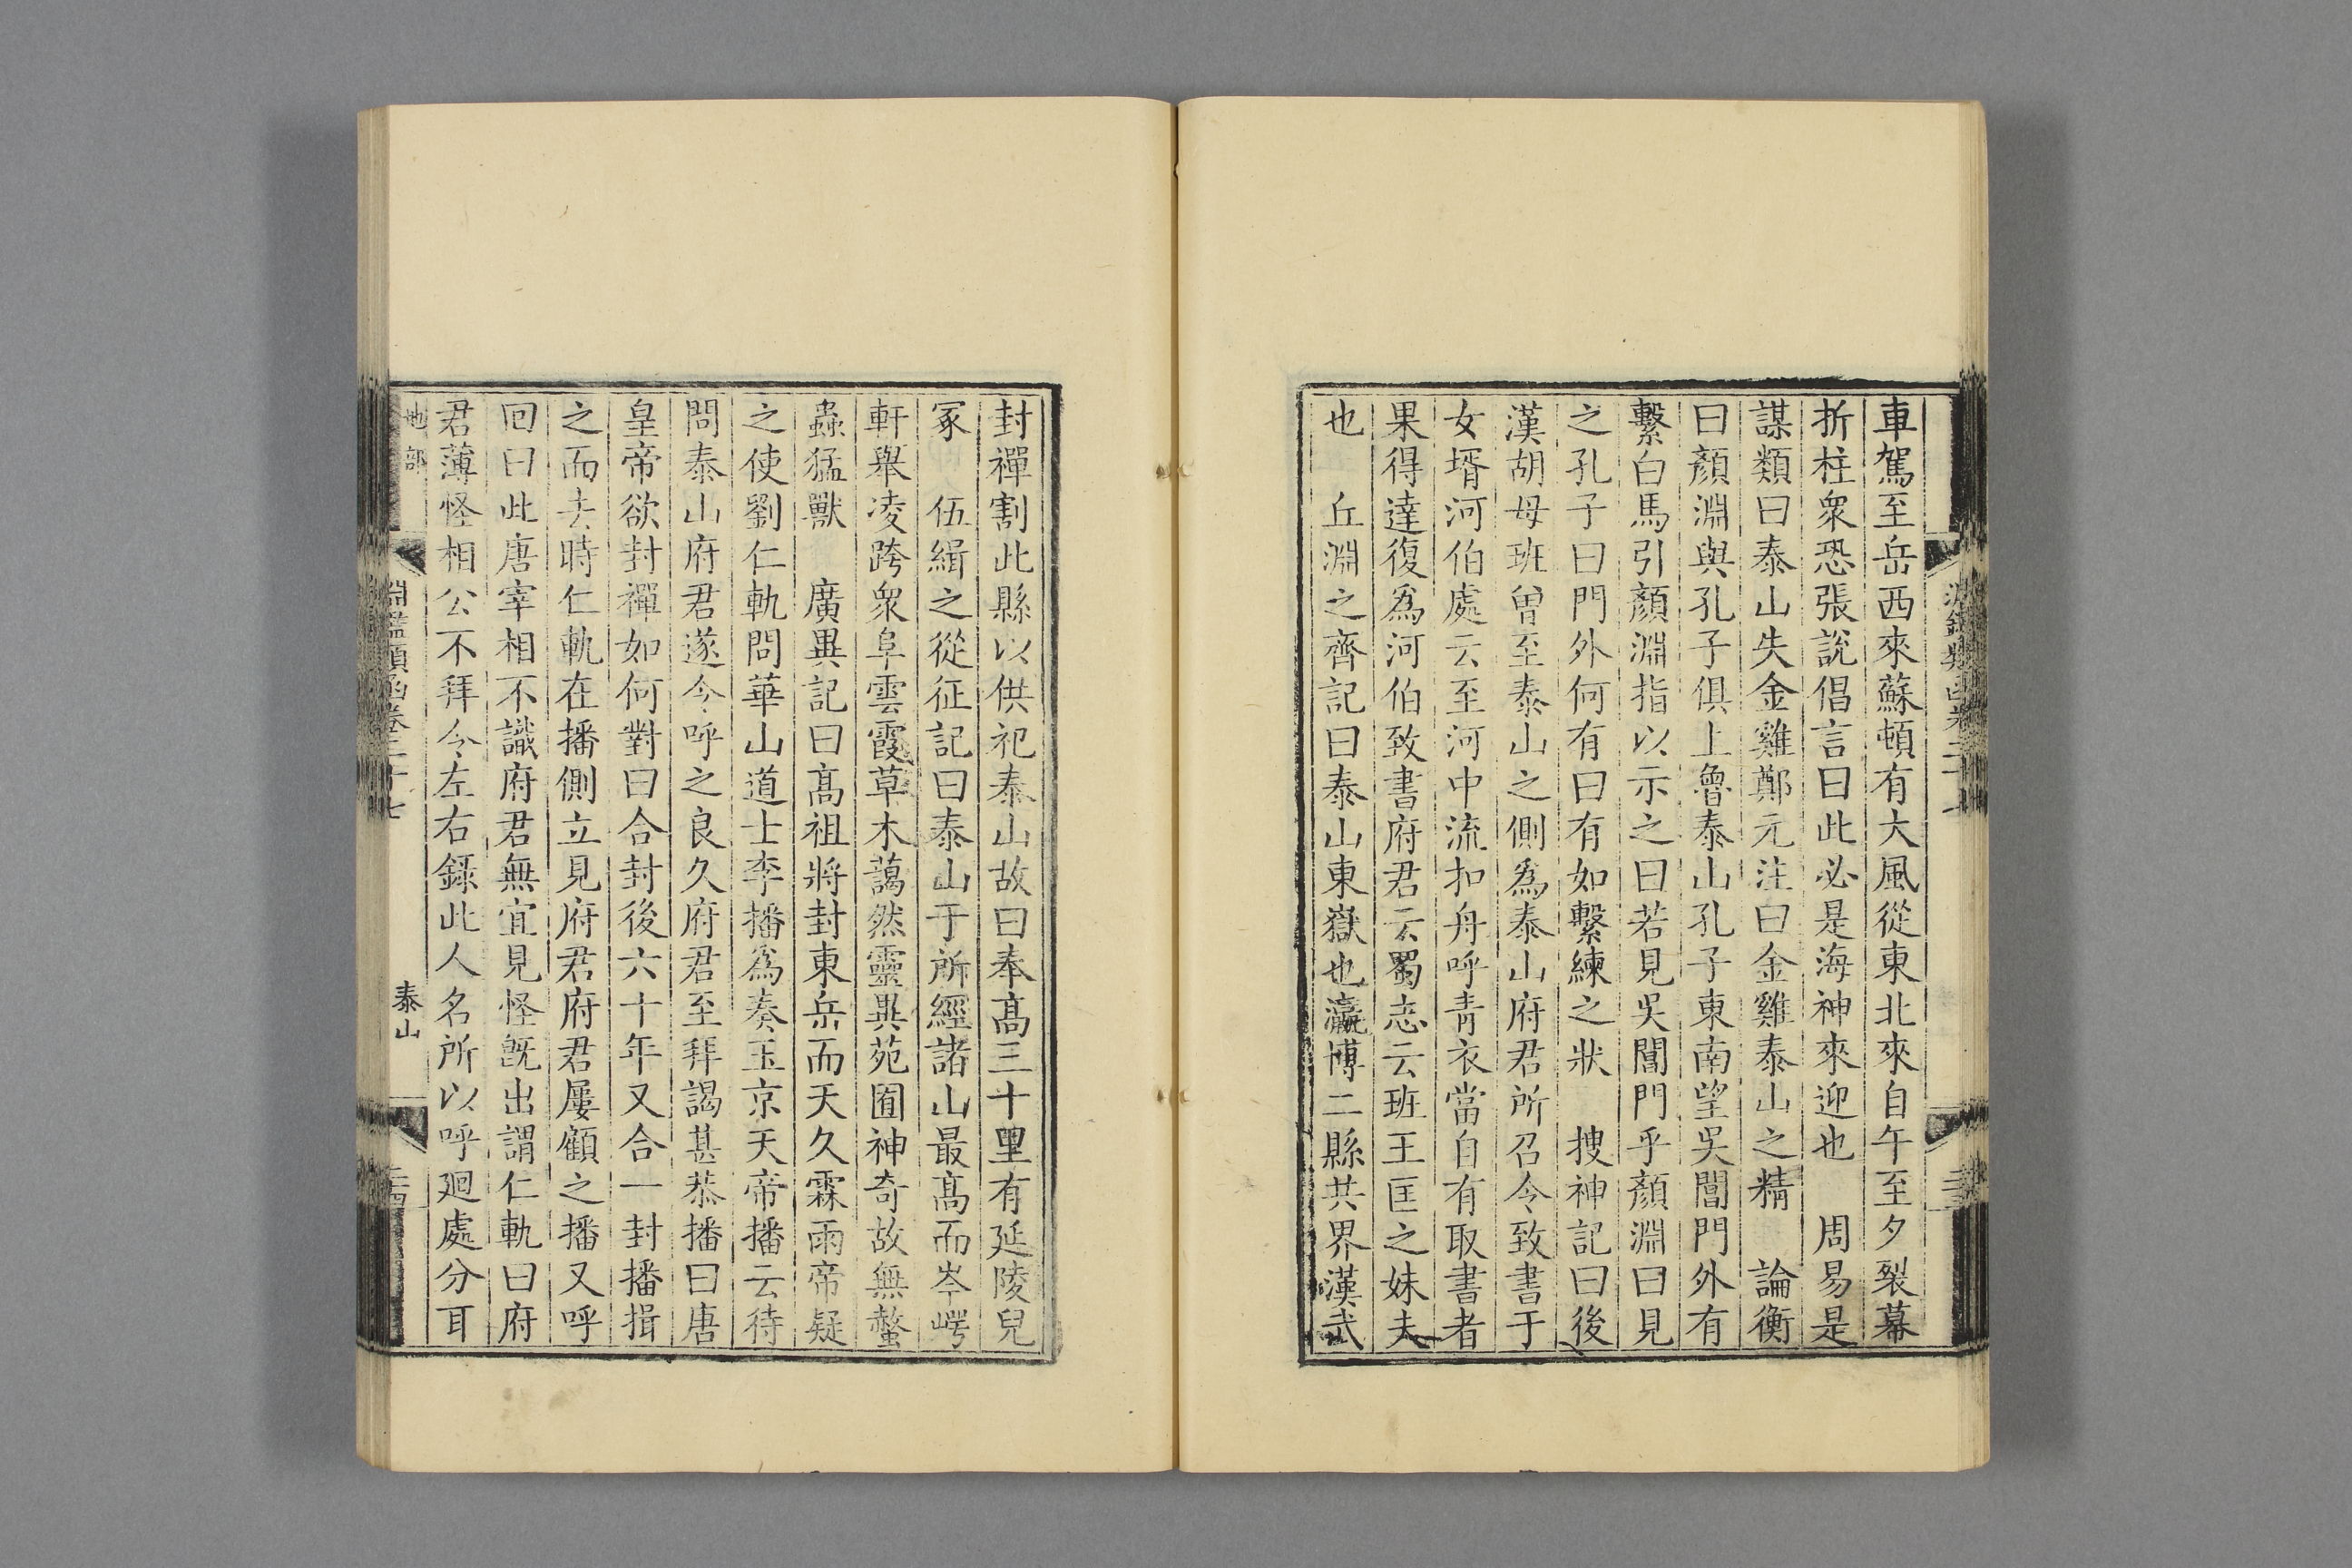 車駕至岳西來蘇頓有大風從東北來自午至夕裂幕
折柱衆恐張說倡言曰此必是海神來迎也　周易是
謀類曰泰山失金雞鄭元注曰金雞泰山之精　論衡
曰顏淵與孔子俱上魯泰山孔子東南望吳閶門外有
繫白馬引顏淵指以示之曰若見吳閶門乎顏淵曰見
之孔子曰門外何有曰有如繫練之狀　搜神記曰後
漢胡母班曾至泰山之側爲泰山府君所召令致書于
女壻河伯處云至河中流扣舟呼青衣當自有取書者
果得達復爲河伯致書府君云蜀志云班王匡之妹夫
也　丘淵之齊記曰泰山東嶽也瀛博二縣共界漢武
封禪割此縣以供祀泰山故曰奉高三十里有延陵兒
冢　伍緝之從征記曰泰山于所經諸山最髙而岑崿
軒舉凌跨衆阜雲霞草木藹然靈異苑囿神奇故無螫
蟲猛獸　廣異記曰髙祖將封東岳而天久霖雨帝疑
之使劉仁軌問華山道士李播爲奏玉京天帝播云待
問泰山府君遂令呼之良久府君至拜謁甚恭播曰唐
皇帝欲封禪如何對曰合封後六十年又合一封播揖
之而去時仁軌在播側立見府君府君屢顧之播又呼
回曰此唐宰相不識府君無宜見怪旣出謂仁軌曰府
君薄怪相公不拜令左右錄此人名所以呼廻處分耳
地部
淵鑑類函卷二十七
泰山